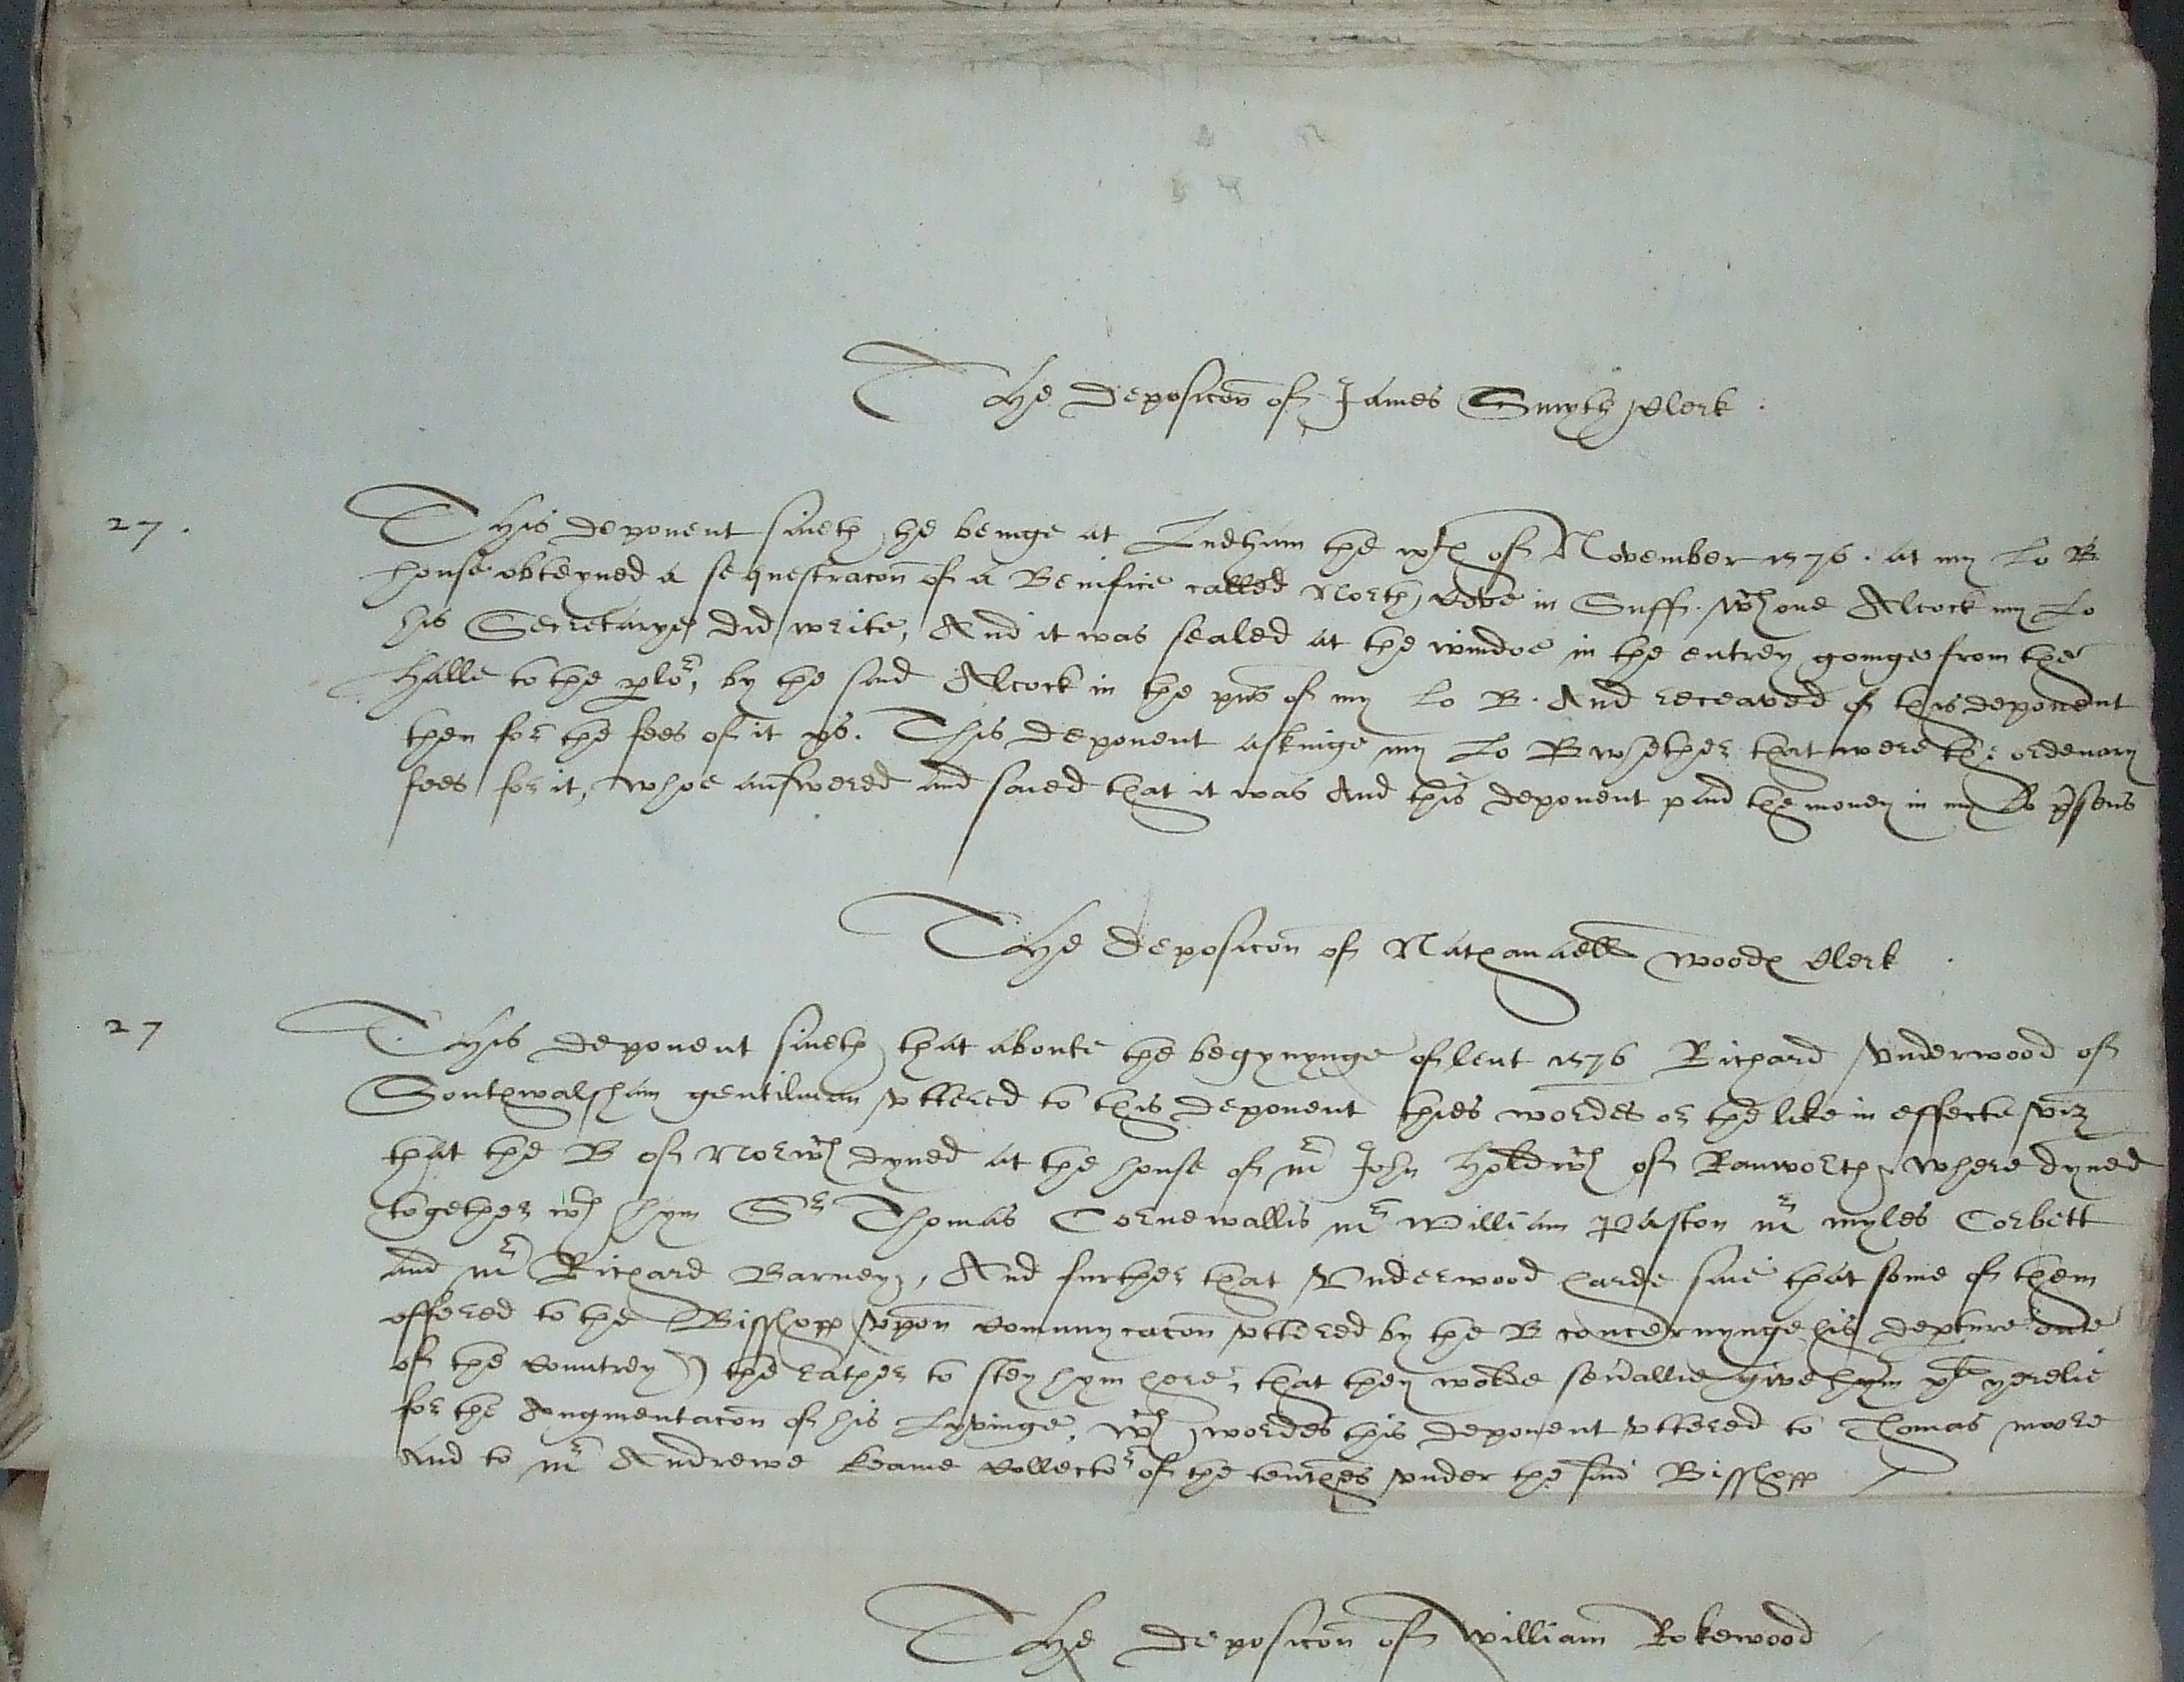 The deposicon of James Smyth Clerk
27. This deponent saieth, he beinge at Ludham the of November 1576. at my Lo B
house obteyned a sequestracon of a Benifice called North Cove in Suff. wch one Alcock my Lo
his Secretarye did write, And it was sealed at the windoe in the entrey goinge from the
halle to the plor, by the said Alcock in the pns of my Lo B. And receaved of this deponent
then for the fees of it xs. This deponent askinge my Lo B whether that were the ordenary
fees for it, whoe answered and saied that it was And this deponent paid the money in my Lo psens
The deposicon of Nathanaell Woode Clerk
27 This deponent saieth, that aboute the begynynge of lent 1576 Richard Vnderwood of
Southwalsham gentilman vttered to this deponent thies wordes or the like in effecte viz
that the B of Norwch dyned at the house of mr John Holdich of Ranworth, where dyned
together wth hym Sr Thomas Cornewallis mr William Paston mr myles Corbett
and mr Richard Barney, And further that Vnderwood harde saie that some of them
offered to the Bisshopp vpon Comunycacon vttered by the B concernynge his depture oute
of the Countrey) the rather to stey hym here, that they wolde seuallie give hym yerelie
for the Augmentacon of his Lyvinge, wch wordes this deponent vttered to Thomas moore
And to mr Andrewe keame Collector of the tenthes vnder the said Bisshopp
The deposicon of William Rokewood